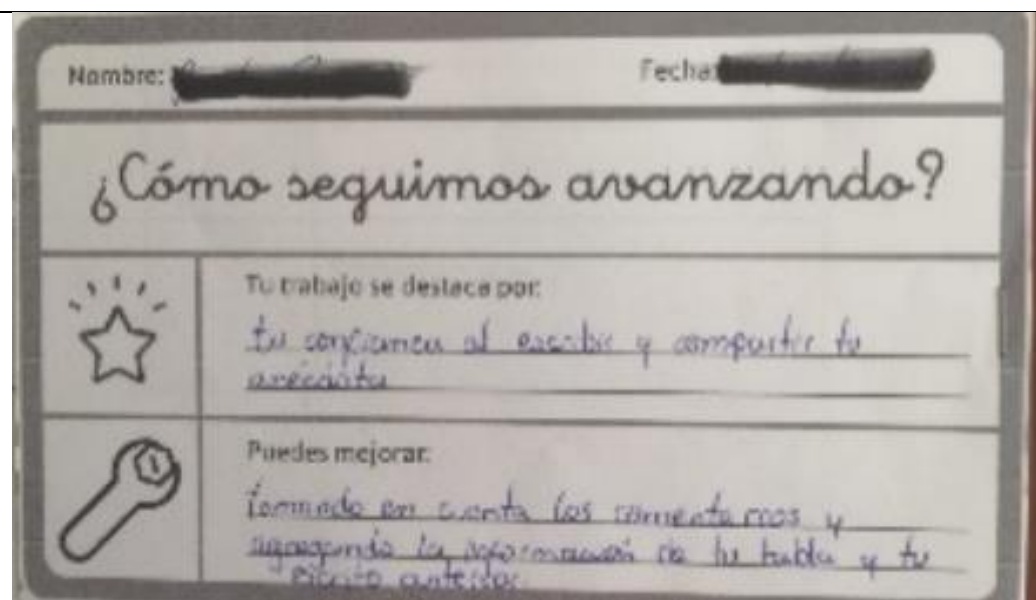 Nombre:
Fecha:
¿Cómo seguimos avanzando?
Tu trabajo se destaca por:
tu confianza al escribir y compartir tu
anécdota
Puedes mejorar:
tomando en cuenta los comentarios y
agregando la información de tu tabla y tu
escrito anterior